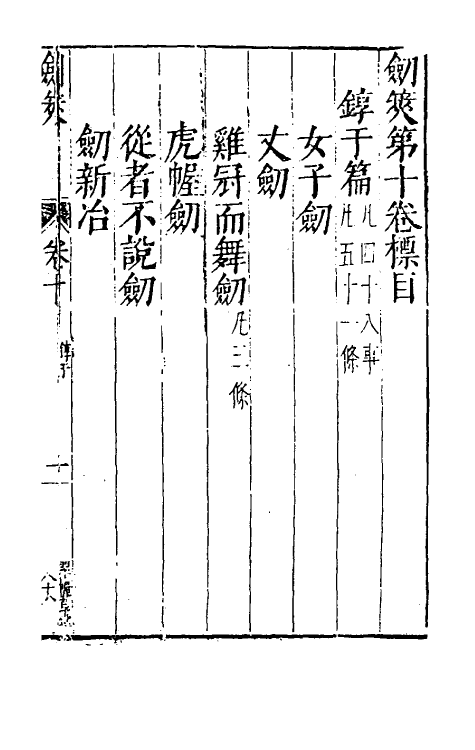 劒筴第十卷標目
錞于篇凡四十八事凡五十一條
女子劒
丈劒
雞冠而舞劒凡三條
虎幄劒
從者不說劒
劒新冶
劒筴 卷十 錞于